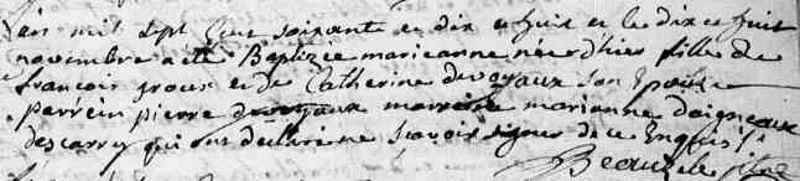 Lan mil sept Cent soixante et dix et huit et le dix et huit
novembre a eté Baptizée marieanne née d'hier fille de
francois groux et de Catherine devoyaux son Epouse
parrein pierre devoyaux marreine marianne daigneaux
descarry qui ont declaré ne scavoir signer de ce Enquis
Beau